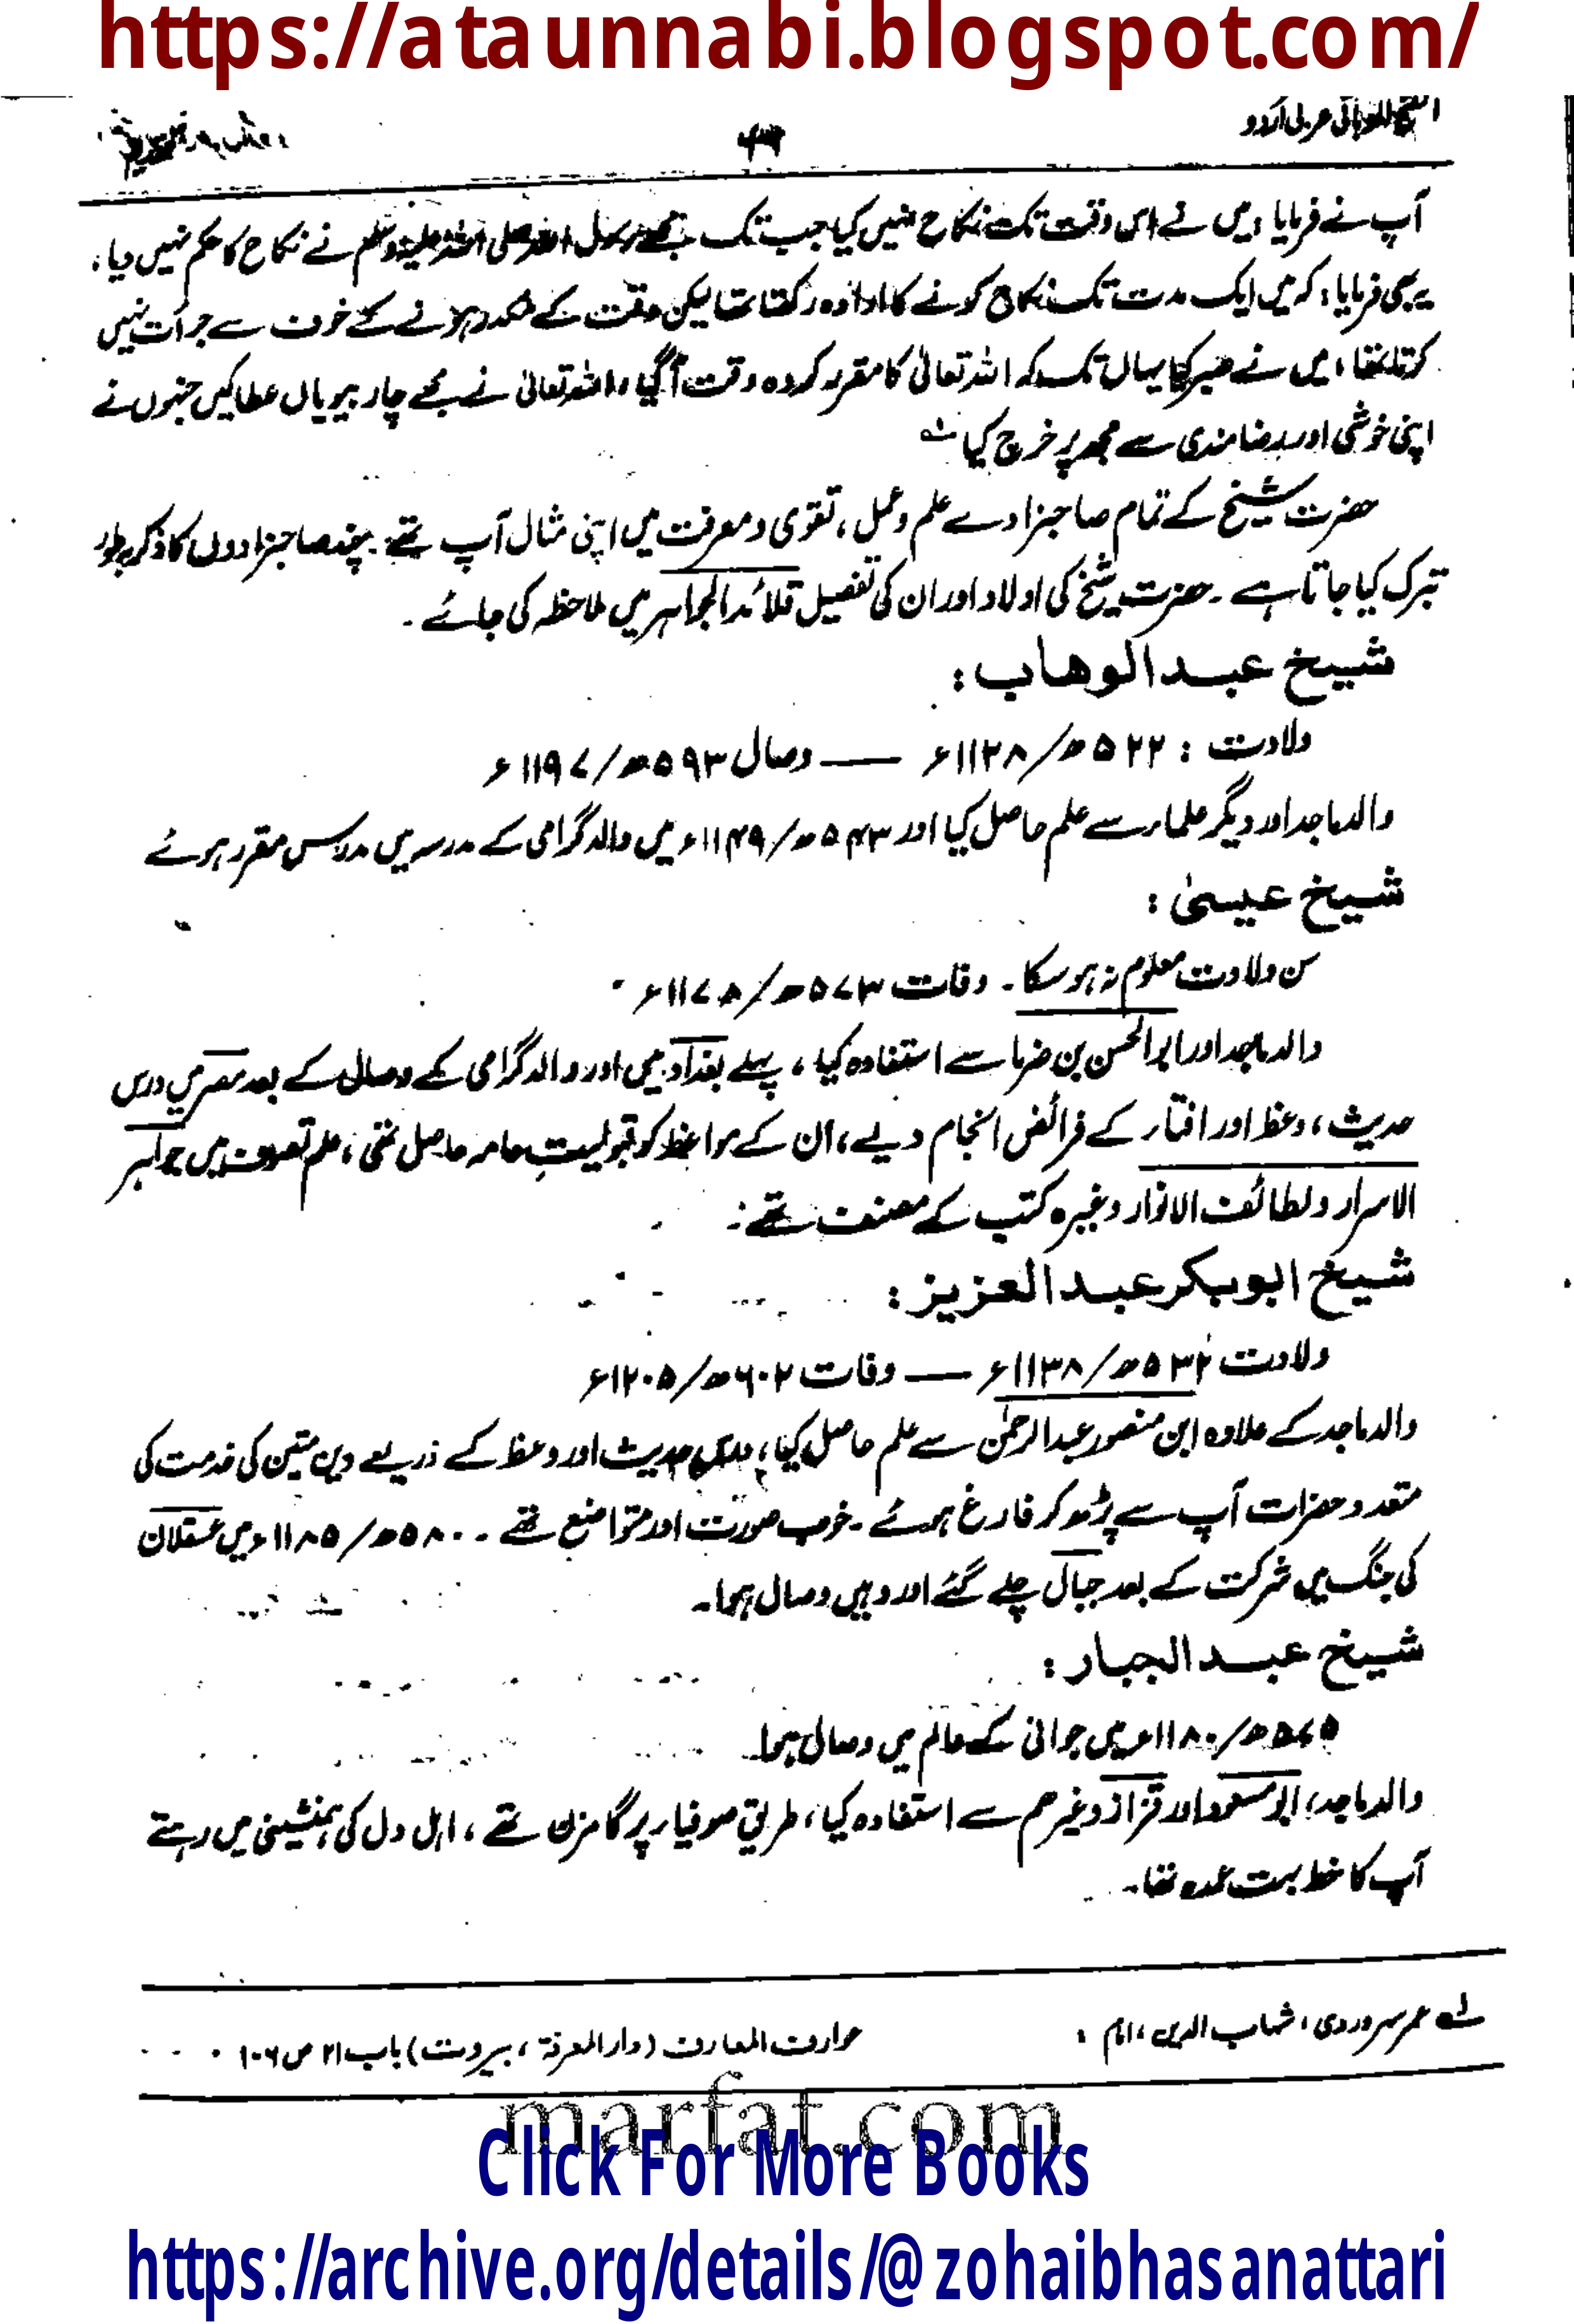 https://ataunnabi.blogspot.com/
الفتح الربانی عربی اردو
آپ نے فرمایا، میں نے اس وقت تک نکاح نہیں کیا جب تک مجھے رسول اللہ صلی اللہ علیہ وسلم نے نکاح کا حکم نہیں دیا،
یہ بھی فرمایا: کہ میں ایک مدت تک نکاح کرنے کا ارادہ رکھتا تھا لیکن وقت کے مکدر ہونے کے خوف سے جرأت نہیں
کرتا تھا، میں نے صبر کیا یہاں تک کہ اللہ تعالیٰ کا مقرر کردہ وقت آگیا، اللہ تعالیٰ نے مجھے چار بیویاں عطا کیں جنہوں نے
اپنی خوشی اور رضامندی سے مجھ پر خرچ کیا لہ
حضرت شیخ کے تمام صاحبزادے علم و عمل، تقوی و معرفت میں اپنی مثال آپ تھے۔ چند صاحبزادوں کا ذکر بطور
تبرک کیا جاتا ہے۔ حضرت شیخ کی اولاد اور ان کی تفصیل قلائد الجواہر میں ملاحظہ کی جائے۔
شیخ عبدالوهاب:
ولادت: ۵۲۲ھ/۱۱۲۸ء — وصال ۵۹۳ھ/۱۱۹۷ء
والد ماجد اور دیگر علماء سے علم حاصل کیا اور ۵۴۳ھ/۱۱۴۹ء میں والد گرامی کے مدرسہ میں مدرس مقرر ہوئے
شیخ عیسیٰ:
سن ولادت معلوم نہ ہو سکا۔ وفات ۵۷۳ھ/۱۱۷۸ء
والد ماجد اور ابوالحسن بن ضرما سے استفادہ کیا، پہلے بغداد میں اور والد گرامی کے وصال کے بعد مصر میں درس
حدیث، وعظ اور افتاء کے فرائض انجام دیے، ان کے مواعظ کو قبولیتِ عامہ حاصل تھی، علم تصوف میں جواہر
الاسرار و لطائف الانوار وغیرہ کتب کے مصنف تھے۔
شیخ ابوبکر عبدالعزیز:
ولادت ۵۳۲ھ/۱۱۳۸ء — وفات ۶۰۲ھ/۱۲۰۵ء
والد ماجد کے علاوہ ابن منصور عبدالرحمٰن سے علم حاصل کیا، درس حدیث اور وعظ کے ذریعے دین متین کی خدمت کی
متعدد حضرات آپ سے پڑھ کر فارغ ہوئے۔ خوب صورت اور متواضع تھے۔ ۵۸۰ھ/۱۱۸۵ء میں عسقلان
کی جنگ میں شرکت کے بعد جبال چلے گئے اور وہیں وصال ہوا۔
شیخ عبدالجبار:
۵۷۵ھ/۱۱۸۰ء میں جوانی کے عالم میں وصال ہوا۔
والد ماجد، ابو مسعود اور قزاز وغیرھم سے استفادہ کیا، طریق صوفیاء پر گامزن تھے، اہل دل کی ہمنشینی میں رہتے
آپ کا خط بہت عمدہ تھا۔
لہ عمر سہروردی، شہاب الدین، امام: عوارف المعارف (دارالمعرفۃ، بیروت) باب ۲۱ ص ۱۰۶
marfat.com
Click For More Books
https://archive.org/details/@zohaibhasanattari